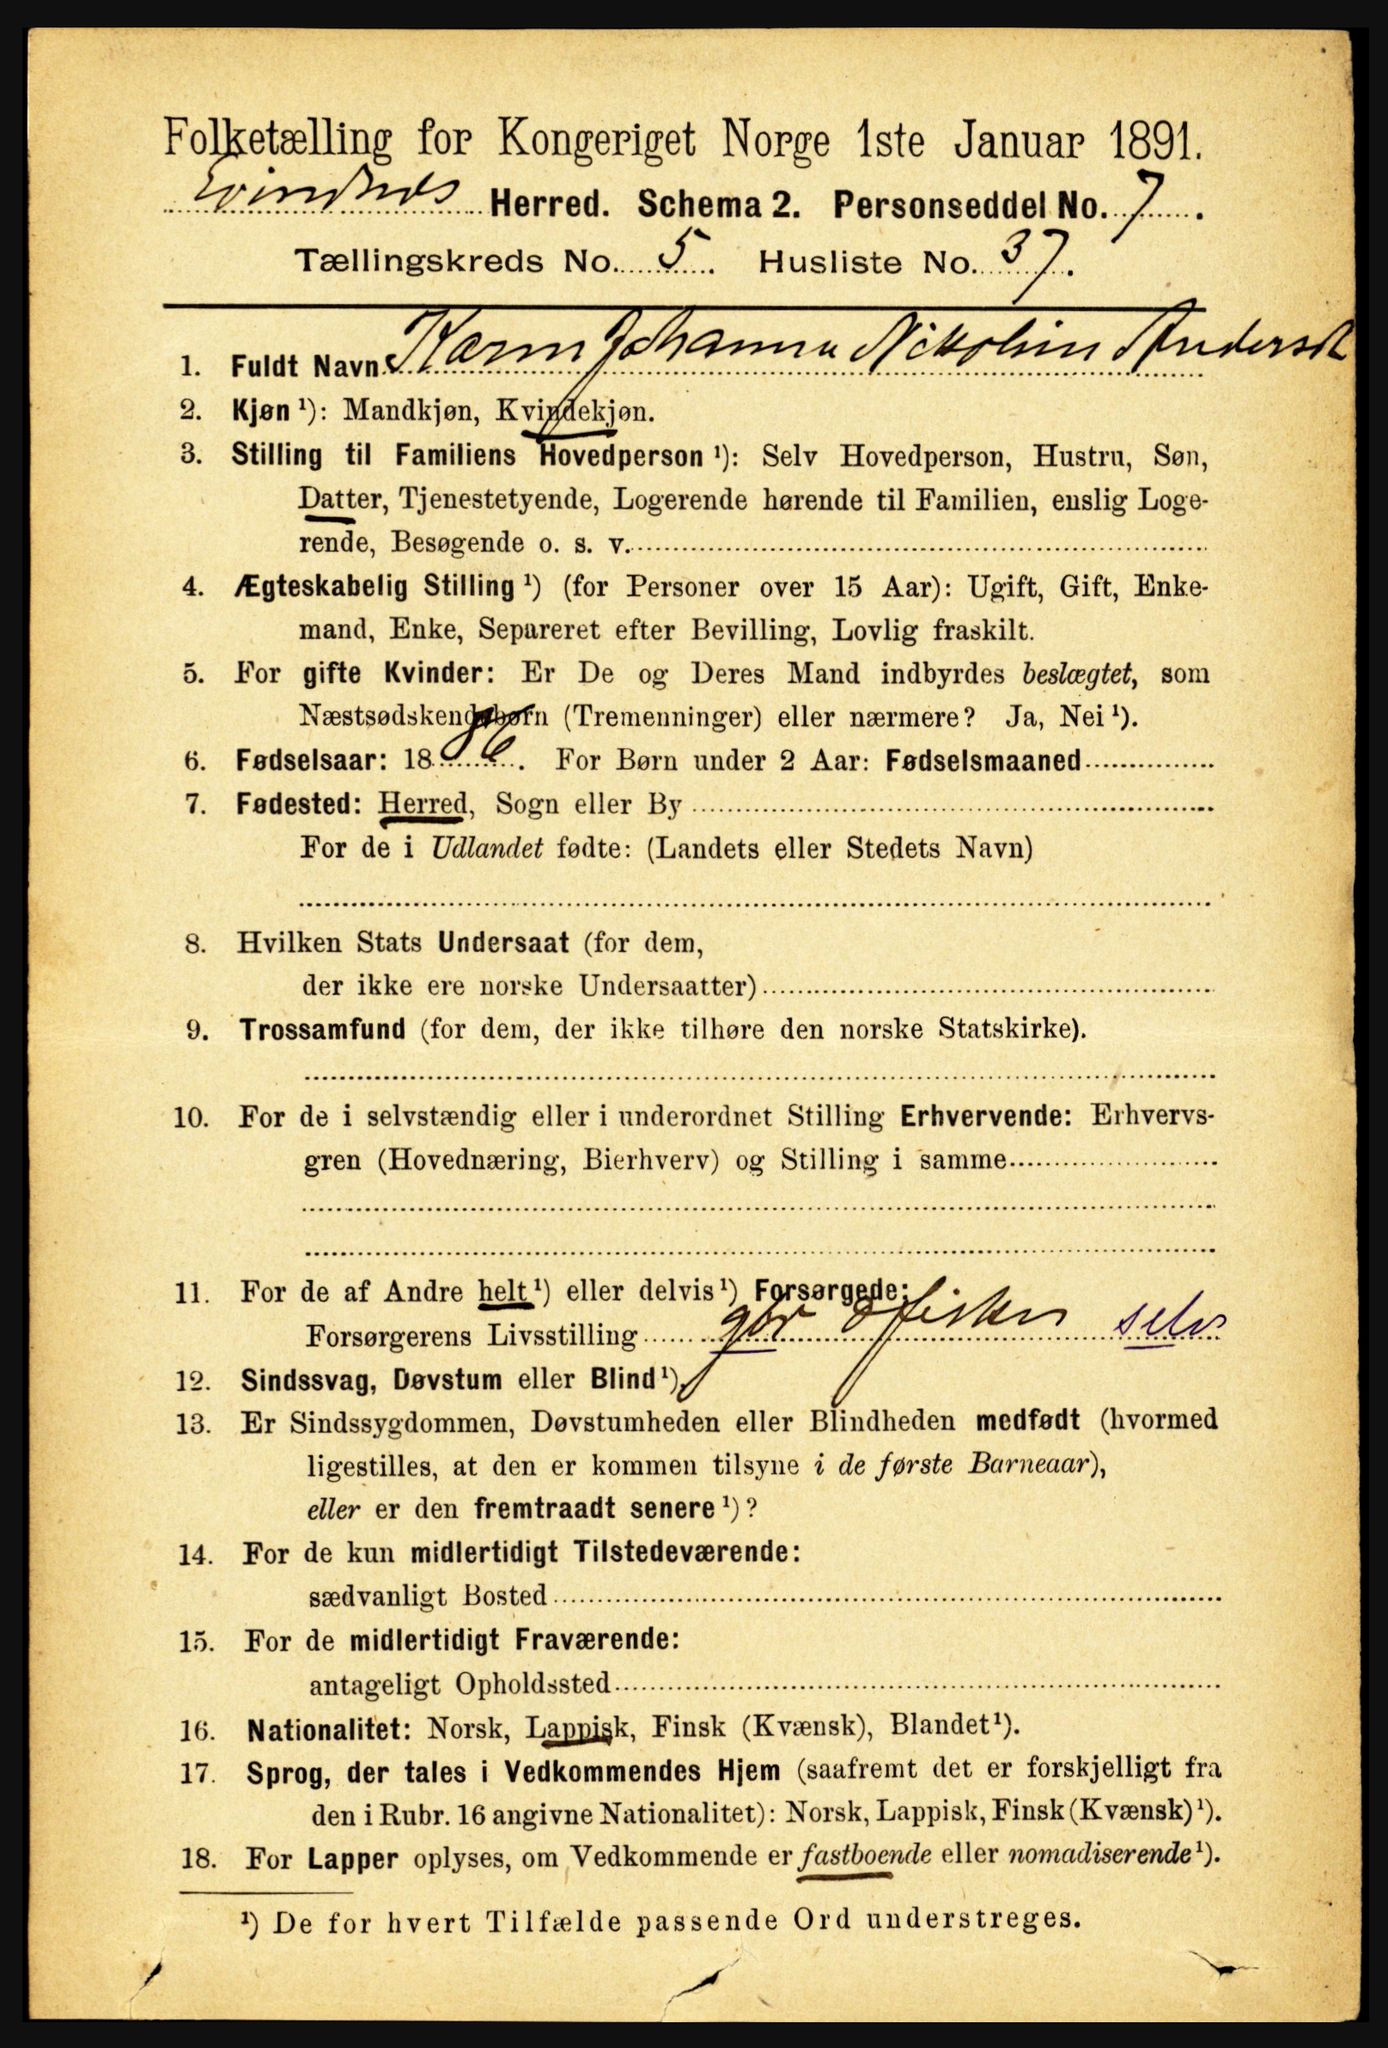 Folketælling for Kongeriget Norge 1ste Januar 1891.
Evindnes Herred. Schema 2. Personseddel No. 7.
Tællingskreds No. 5. Husliste No. 37.
1. Fuldt Navn Karen Johanna Nikolina Andersd
2. Kjøn ¹): Mandkjøn, Kvindekjøn.
3. Stilling til Familiens Hovedperson ¹): Selv Hovedperson, Hustru, Søn,
Datter, Tjenestetyende, Logerende hørende til Familien, enslig Loge-
rende, Besøgende o. s. v.
4. Ægteskabelig Stilling ¹) (for Personer over 15 Aar): Ugift, Gift, Enke-
mand, Enke, Separeret efter Bevilling, Lovlig fraskilt.
5. For gifte Kvinder: Er De og Deres Mand indbyrdes beslægtet, som
Næstsødskendebørn (Tremenninger) eller nærmere? Ja, Nei ¹).
6. Fødselsaar: 1886. For Børn under 2 Aar: Fødselsmaaned
7. Fødested: Herred, Sogn eller By
For de i Udlandet fødte: (Landets eller Stedets Navn)
8. Hvilken Stats Undersaat (for dem,
der ikke ere norske Undersaatter)
9. Trossamfund (for dem, der ikke tilhøre den norske Statskirke).
10. For de i selvstændig eller i underordnet Stilling Erhvervende: Erhvervs-
gren (Hovednæring, Bierhverv) og Stilling i samme
11. For de af Andre helt ¹) eller delvis ¹) Forsørgede:
Forsørgerens Livsstilling gbr Fisker selv
12. Sindssvag, Døvstum eller Blind ¹).
13. Er Sindssygdommen, Døvstumheden eller Blindheden medfødt (hvormed
ligestilles, at den er kommen tilsyne i de første Barneaar),
eller er den fremtraadt senere ¹)?
14. For de kun midlertidigt Tilstedeværende:
sædvanligt Bosted
15. For de midlertidigt Fraværende:
antageligt Opholdssted
16. Nationalitet: Norsk, Lappisk, Finsk (Kvænsk), Blandet ¹).
17. Sprog, der tales i Vedkommendes Hjem (saafremt det er forskjelligt fra
den i Rubr. 16 angivne Nationalitet): Norsk, Lappisk, Finsk (Kvænsk) ¹).
18. For Lapper oplyses, om Vedkommende er fastboende eller nomadiserende ¹).
¹) De for hvert Tilfælde passende Ord understreges.